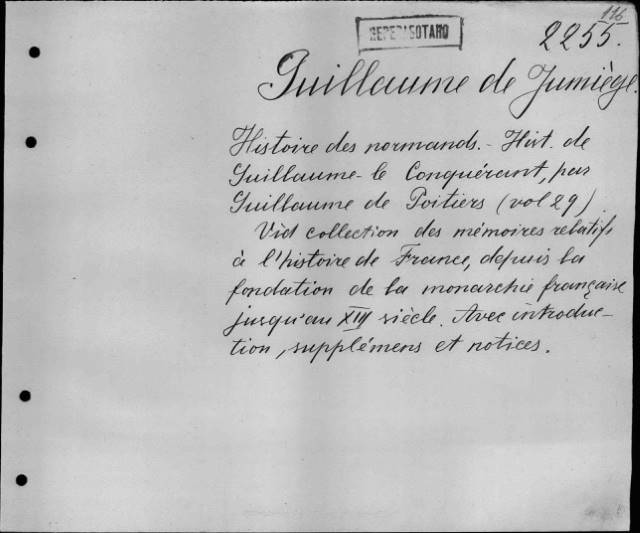 116
2255.
Guillaume de Jumiège.
Histoire des normands. - Hist. de
Guillaume-le Conquérant, par
Guillaume de Poitiers (vol 29)
Vid collection des mémoires relatifs
à l'histoire de France, depuis la
fondation de la monarchie française
jusqu'au XIII siècle. Avec introduc-
tion, supplémens et notices.